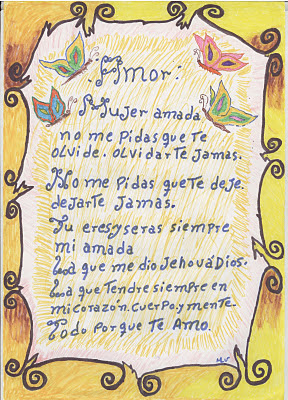 Amor:
Mujer amada
no me Pidas que te
olvide. olvidarte Jamas.
No me Pidas que te deje.
dejarte Jamas.
Tu eres y seras siempre
mi amada
La que me dio Jehová Dios.
La que Tendre siempre en
mi corazón. cuerpo, y mente.
Todo Porque Te Amo.
M.V